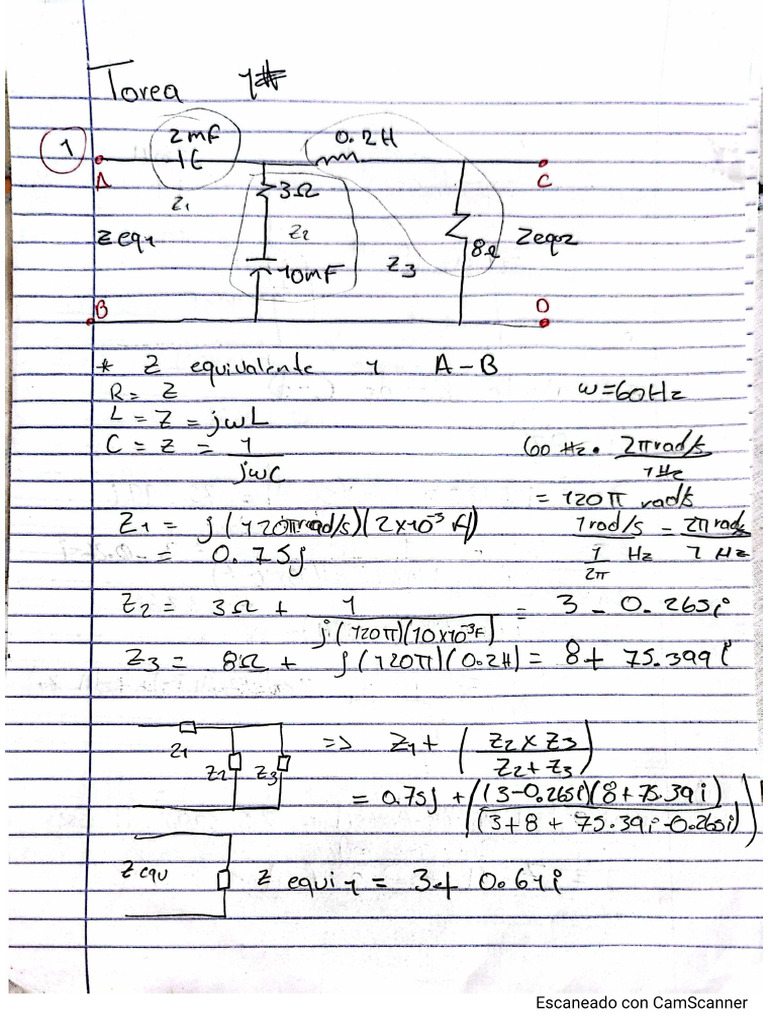 Tarea 1#
1
2mF
0.2H
A
C
3Ω
Z1
Z2
Zeq1
8Ω
Zeq2
10mF
Z3
B
D
* Z equivalente 1 A-B
R = Z
w=60Hz
L = Z = jwL
C = Z = 1/jwC
60 Hz · 2π rad/s / 1Hz
= 120π rad/s
Z1 = j(120π rad/s)(2x10⁻³ H)
1 rad/s / 1/2π Hz = 2π rad/s / 1 Hz
= 0.75j
Z2 = 3Ω + 1/j(120π)(10x10⁻³F) = 3 - 0.265i
Z3 = 8Ω + j(120π)(0.2H) = 8 + 75.399i
Z1
Z2
Z3
=> Z1 + (Z2 x Z3 / Z2 + Z3)
= 0.75j + ((3-0.265i)(8+75.39i) / (3+8+75.39i-0.265i))
Z equ
Z equi 1 = 3 + 0.61i
Escaneado con CamScanner